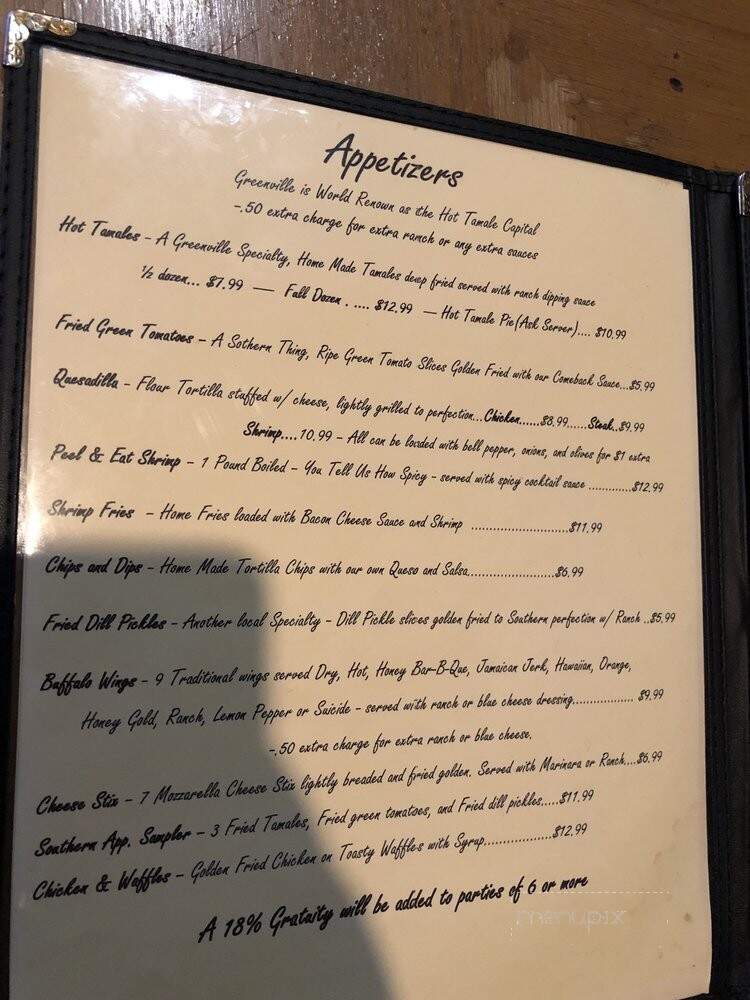 Appetizers
Greenville is World Renown as the Hot Tamale Capital
-.50 extra charge for extra ranch or any extra sauces
Hot Tamales - A Greenville Specialty, Home Made Tamales deep fried served with ranch dipping sauce
½ dozen... $7.99 — Full Dozen . .... $12.99 — Hot Tamale Pie(Ask Server).... $10.99
Fried Green Tomatoes - A Sothern Thing, Ripe Green Tomato Slices Golden Fried with our Comeback Sauce...$5.99
Quesadilla - Flour Tortilla stuffed w/ cheese, lightly grilled to perfection...Chicken......$8.99......Steak..$9.99
Shrimp....10.99 - All can be loaded with bell pepper, onions, and olives for $1 extra
Peel & Eat Shrimp - 1 Pound Boiled - You Tell Us How Spicy - served with spicy cocktail sauce .............$12.99
Shrimp Fries - Home Fries loaded with Bacon Cheese Sauce and Shrimp ........................$11.99
Chips and Dips - Home Made Tortilla Chips with our own Queso and Salsa.......................$6.99
Fried Dill Pickles - Another local Specialty - Dill Pickle slices golden fried to Southern perfection w/ Ranch ..$5.99
Buffalo Wings - 9 Traditional wings served Dry, Hot, Honey Bar-B-Que, Jamaican Jerk, Hawaiian, Orange,
Honey Gold, Ranch, Lemon Pepper or Suicide - served with ranch or blue cheese dressing.................. $9.99
-.50 extra charge for extra ranch or blue cheese.
Cheese Stix - 7 Mozzarella Cheese Stix lightly breaded and fried golden. Served with Marinara or Ranch....$6.99
Southern App. Sampler - 3 Fried Tamales, Fried green tomatoes, and Fried dill pickles.....$11.99
Chicken & Waffles - Golden Fried Chicken on Toasty Waffles with Syrup..................$12.99
A 18% Gratuity will be added to parties of 6 or more
menupix